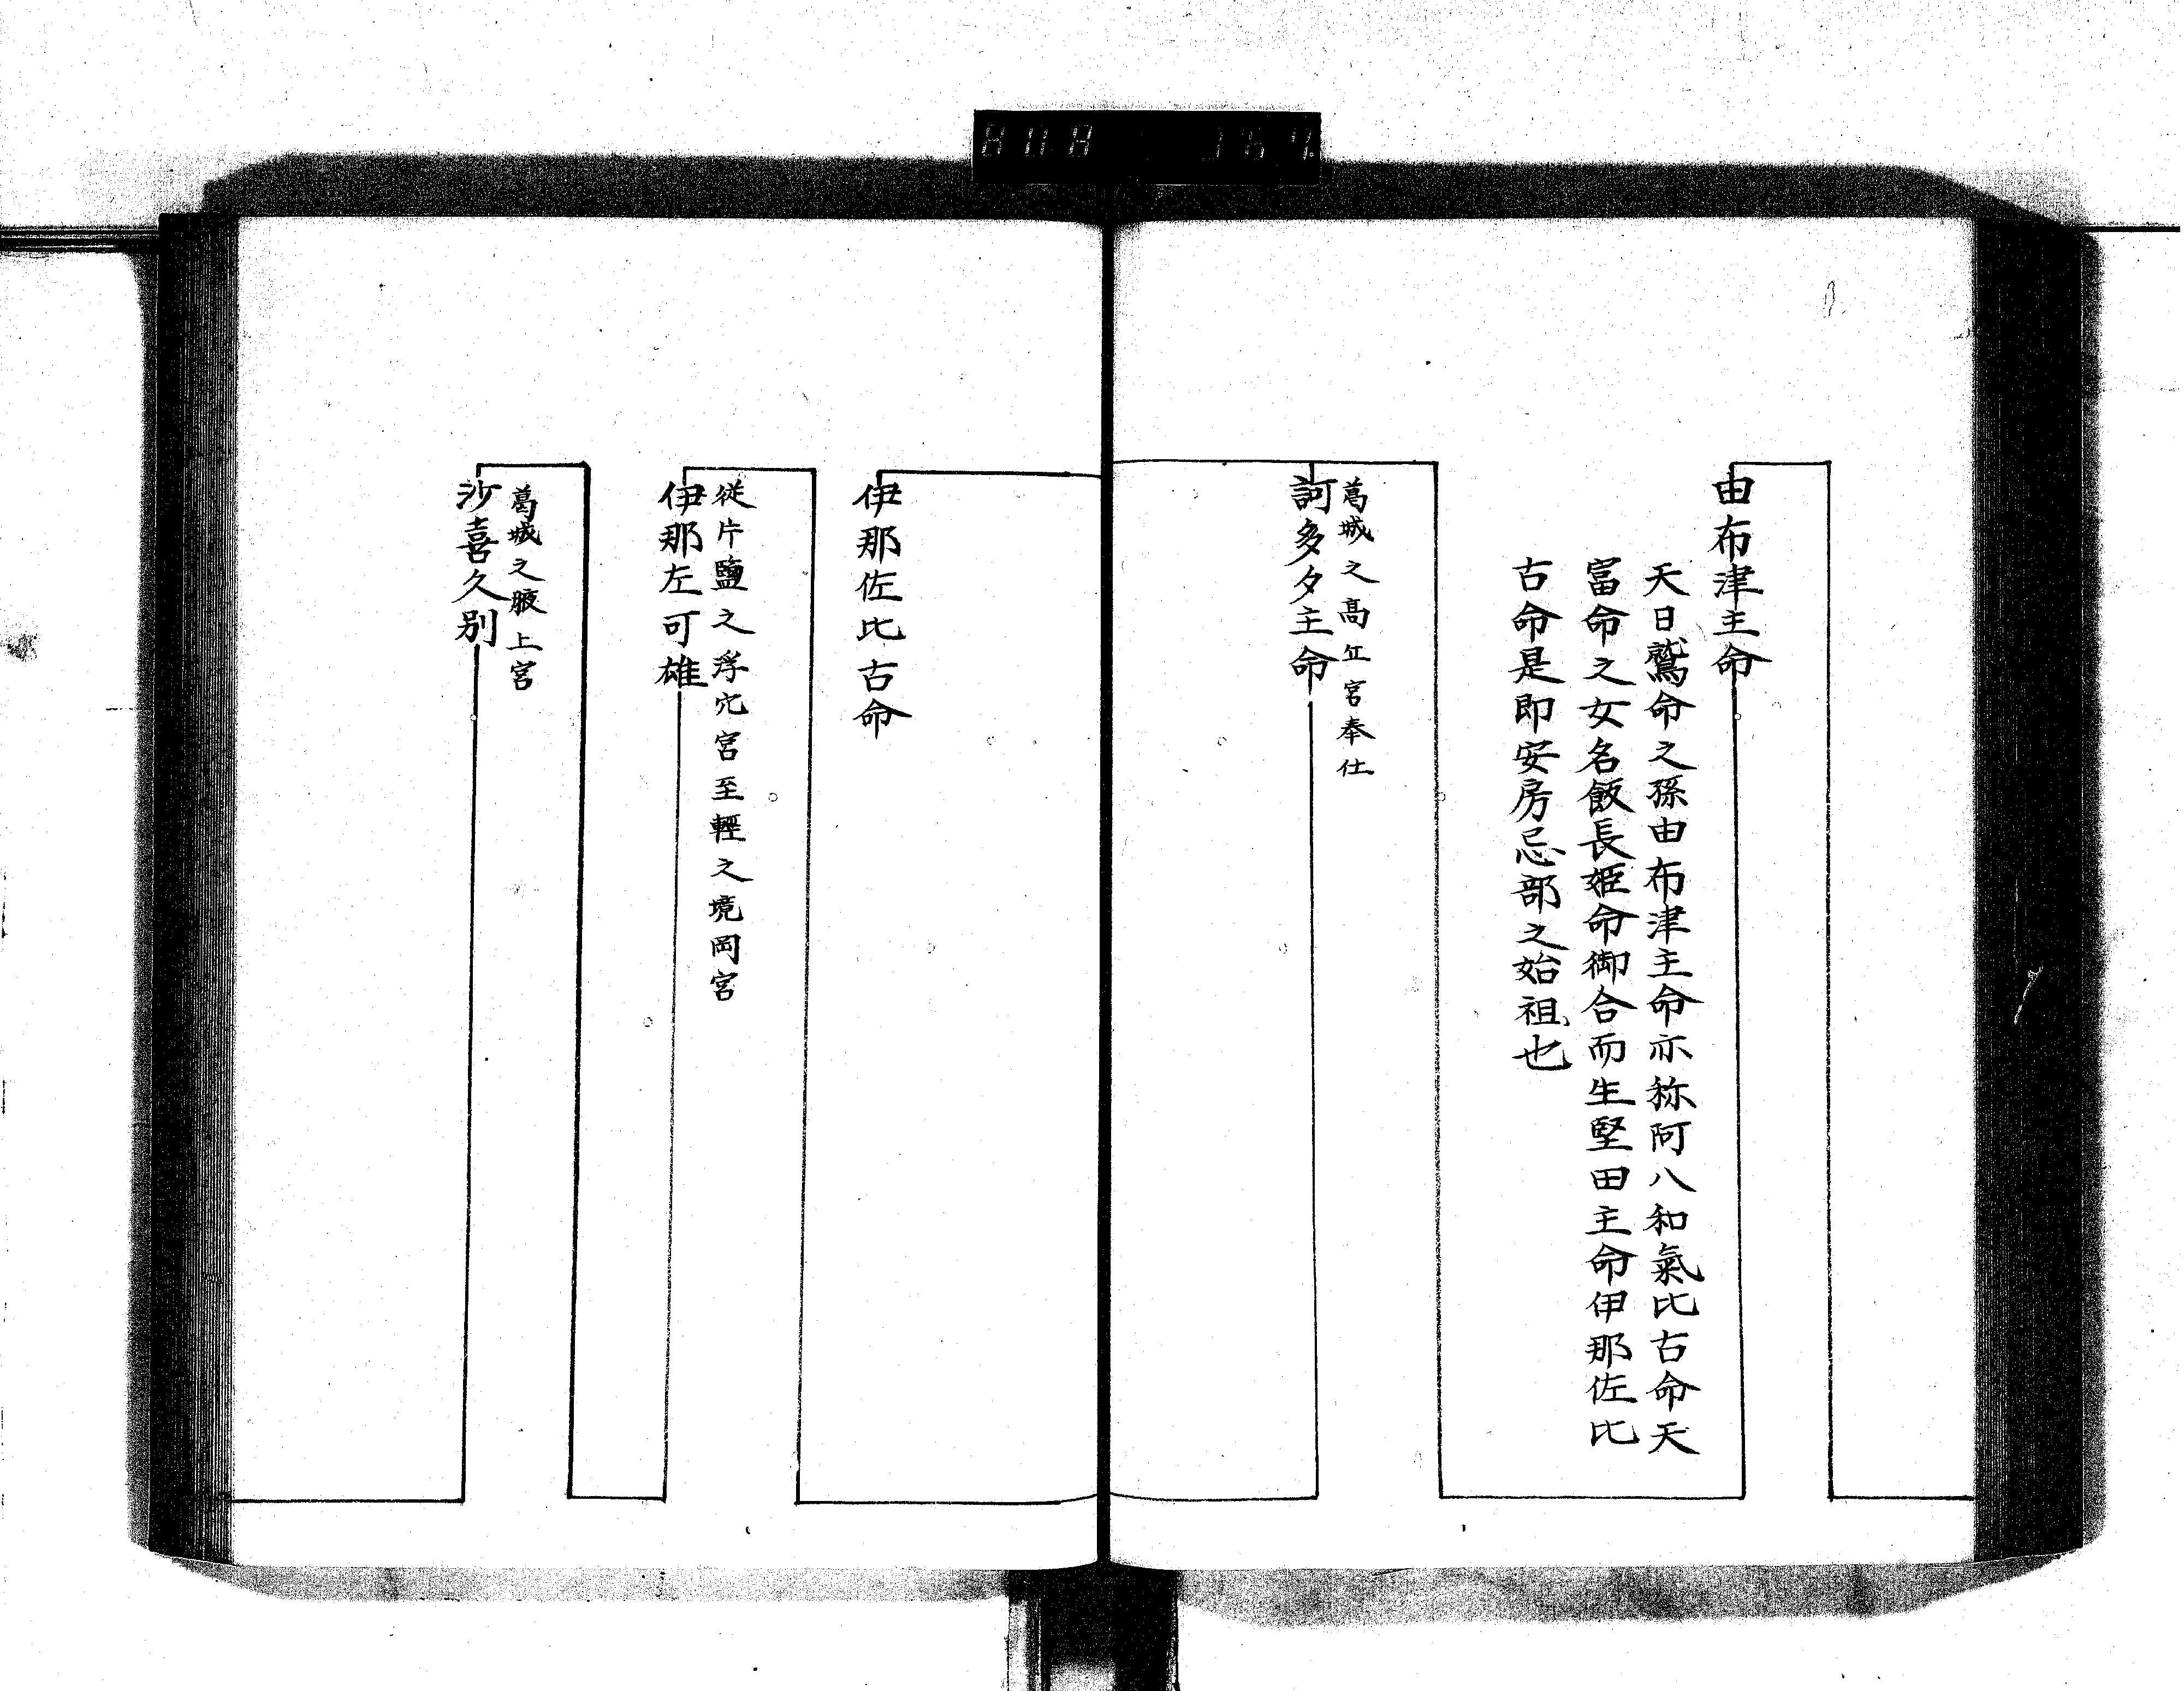 由布津主命
天日鷲命之孫由布津主命亦称阿八和氣比古命天
富命之女名飯長姫命御合而生堅田主命伊那佐比
古命是即安房忌部之始祖也
葛城之高丘宮奉仕
訶多々主命
伊那佐比古命
従片鹽之浮穴宮至輕之境岡宮
伊那左可雄
葛城之腋上宮
沙喜久別